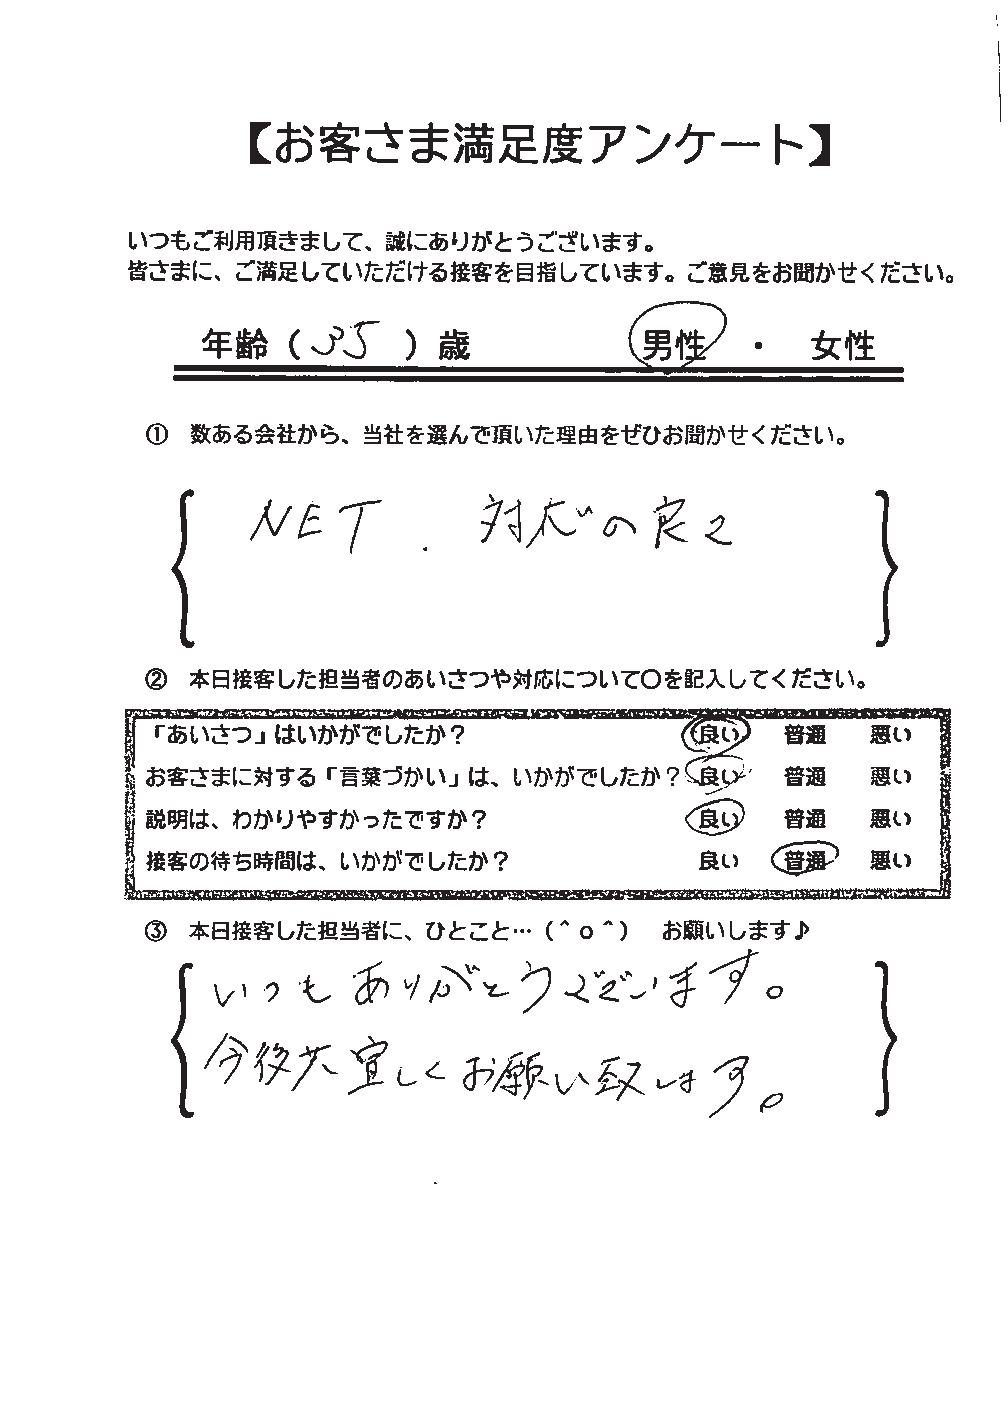 【お客さま満足度アンケート】
いつもご利用頂きまして、誠にありがとうございます。
皆さまに、ご満足していただける接客を目指しています。ご意見をお聞かせください。
年齢（35）歳 男性 ・ 女性
① 数ある会社から、当社を選んで頂いた理由をぜひお聞かせください。
NET. 対応の良さ
② 本日接客した担当者のあいさつや対応について〇を記入してください。
「あいさつ」はいかがでしたか？ 良い 普通 悪い
お客さまに対する「言葉づかい」は、いかがでしたか？ 良い 普通 悪い
説明は、わかりやすかったですか？ 良い 普通 悪い
接客の待ち時間は、いかがでしたか？ 良い 普通 悪い
③ 本日接客した担当者に、ひとこと…（＾o＾） お願いします♪
いつもありがとうございます。
今後共宜しくお願い致します。